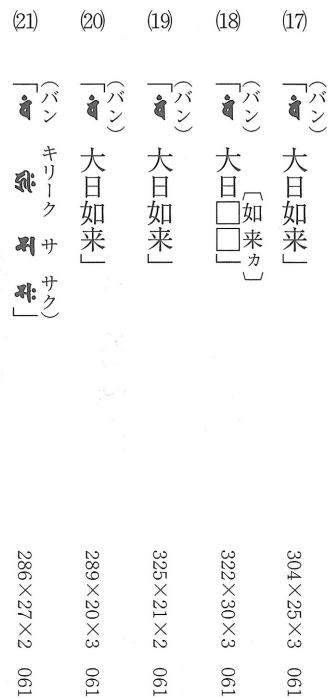 (17) 「(バン) 大日如来」 304×25×3 061
(18) 「(バン) 大日□□」〔如来ヵ〕 322×30×3 061
(19) 「(バン) 大日如来」 325×21×2 061
(20) 「(バン) 大日如来」 289×20×3 061
(21) 「(バン キリーク サ サク)」 286×27×2 061